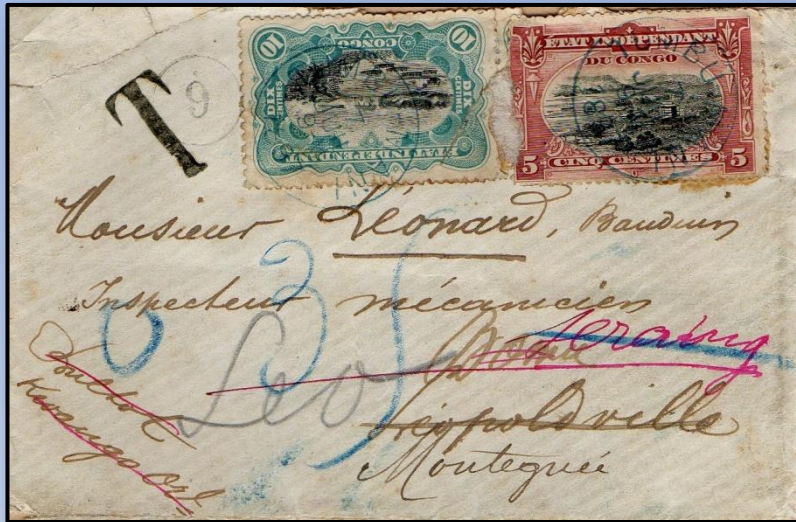 10 CONGO 10
DIX CENTIMES
DIX CENTIMES
ETAT INDEPENDANT
ETAT INDEPENDANT
DU CONGO
5 CINQ CENTIMES 5
T
9
Monsieur Léonard, Bauduin
Inspecteur mécanicien
Seraing
Leo
Léopoldville
Montegnée